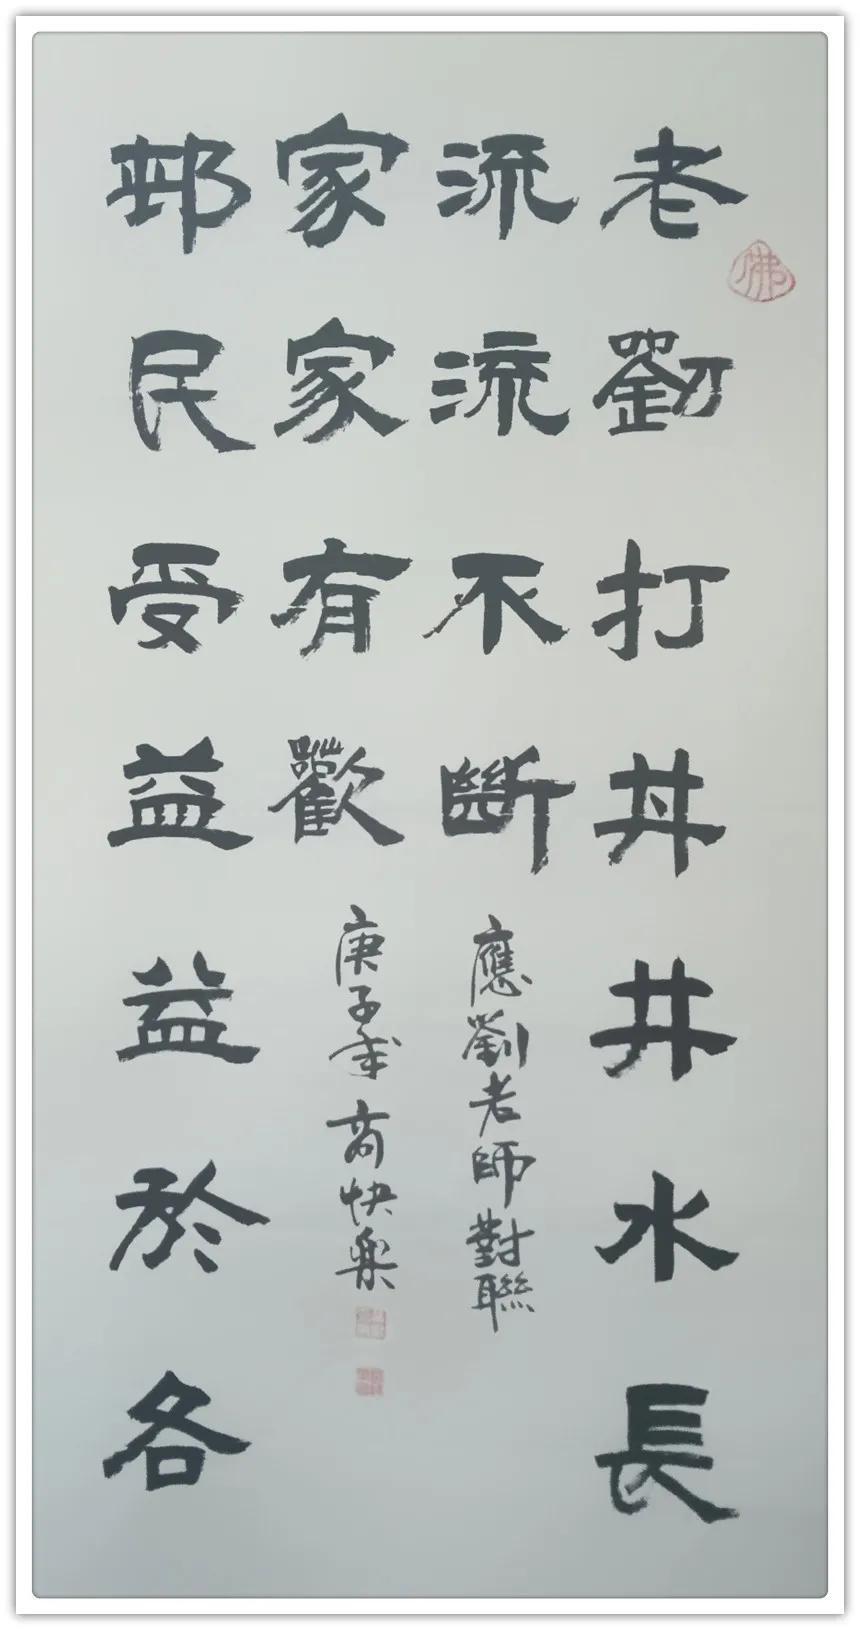 老劉打丼井水長
流流不斷
應劉老師對聯
邨民受益益於各
家家有歡
庚子年高快樂
佛